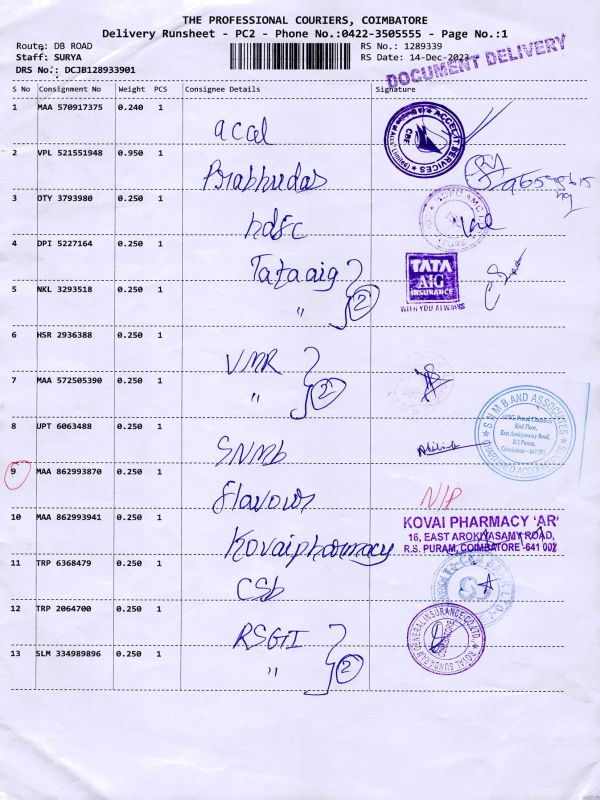 THE PROFESSIONAL COURIERS, COIMBATORE
Delivery Runsheet - PC2 - Phone No.:0422-3505555 - Page No.:1
Route: DB ROAD
Staff: SURYA
DRS No.: DCJB128933901
RS No.: 1289339
RS Date: 14-Dec-2023
DOCUMENT DELIVERY
S No Consignment No Weight PCS Consignee Details Signature
1 MAA 570917375 0.240 1 accel
ACCEL IT SERVICES
CBE
2 VPL 521551948 0.950 1 Prabhudas
3 OTY 3793980 0.250 1 hdfc
4 DPI 5227164 0.250 1 Tataaig
TATA
AIG
INSURANCE
WITH YOU ALWAYS
5 NKL 3293518 0.250 1 " 2
6 HSR 2936388 0.250 1 VMR
7 MAA 572505390 0.250 1 " 2
8 UPT 6063488 0.250 1 SNMb
S N M B AND ASSOCIATES
CHARTERED ACCOUNTANTS
IInd Floor,
East Arokiyasamy Road,
R.S. Puram,
Coimbatore - 641 002
9 MAA 862993870 0.250 1 flavours N/P
10 MAA 862993941 0.250 1 Kovaipharmacy
KOVAI PHARMACY 'AR'
16, EAST AROKIYASAMY ROAD,
R.S. PURAM, COIMBATORE -641 002
11 TRP 6368479 0.250 1 CSb
12 TRP 2064700 0.250 1 RSGII
ROYAL SUNDARAM GENERAL INSURANCE CO. LTD.
13 SLM 334989896 0.250 1 " 2